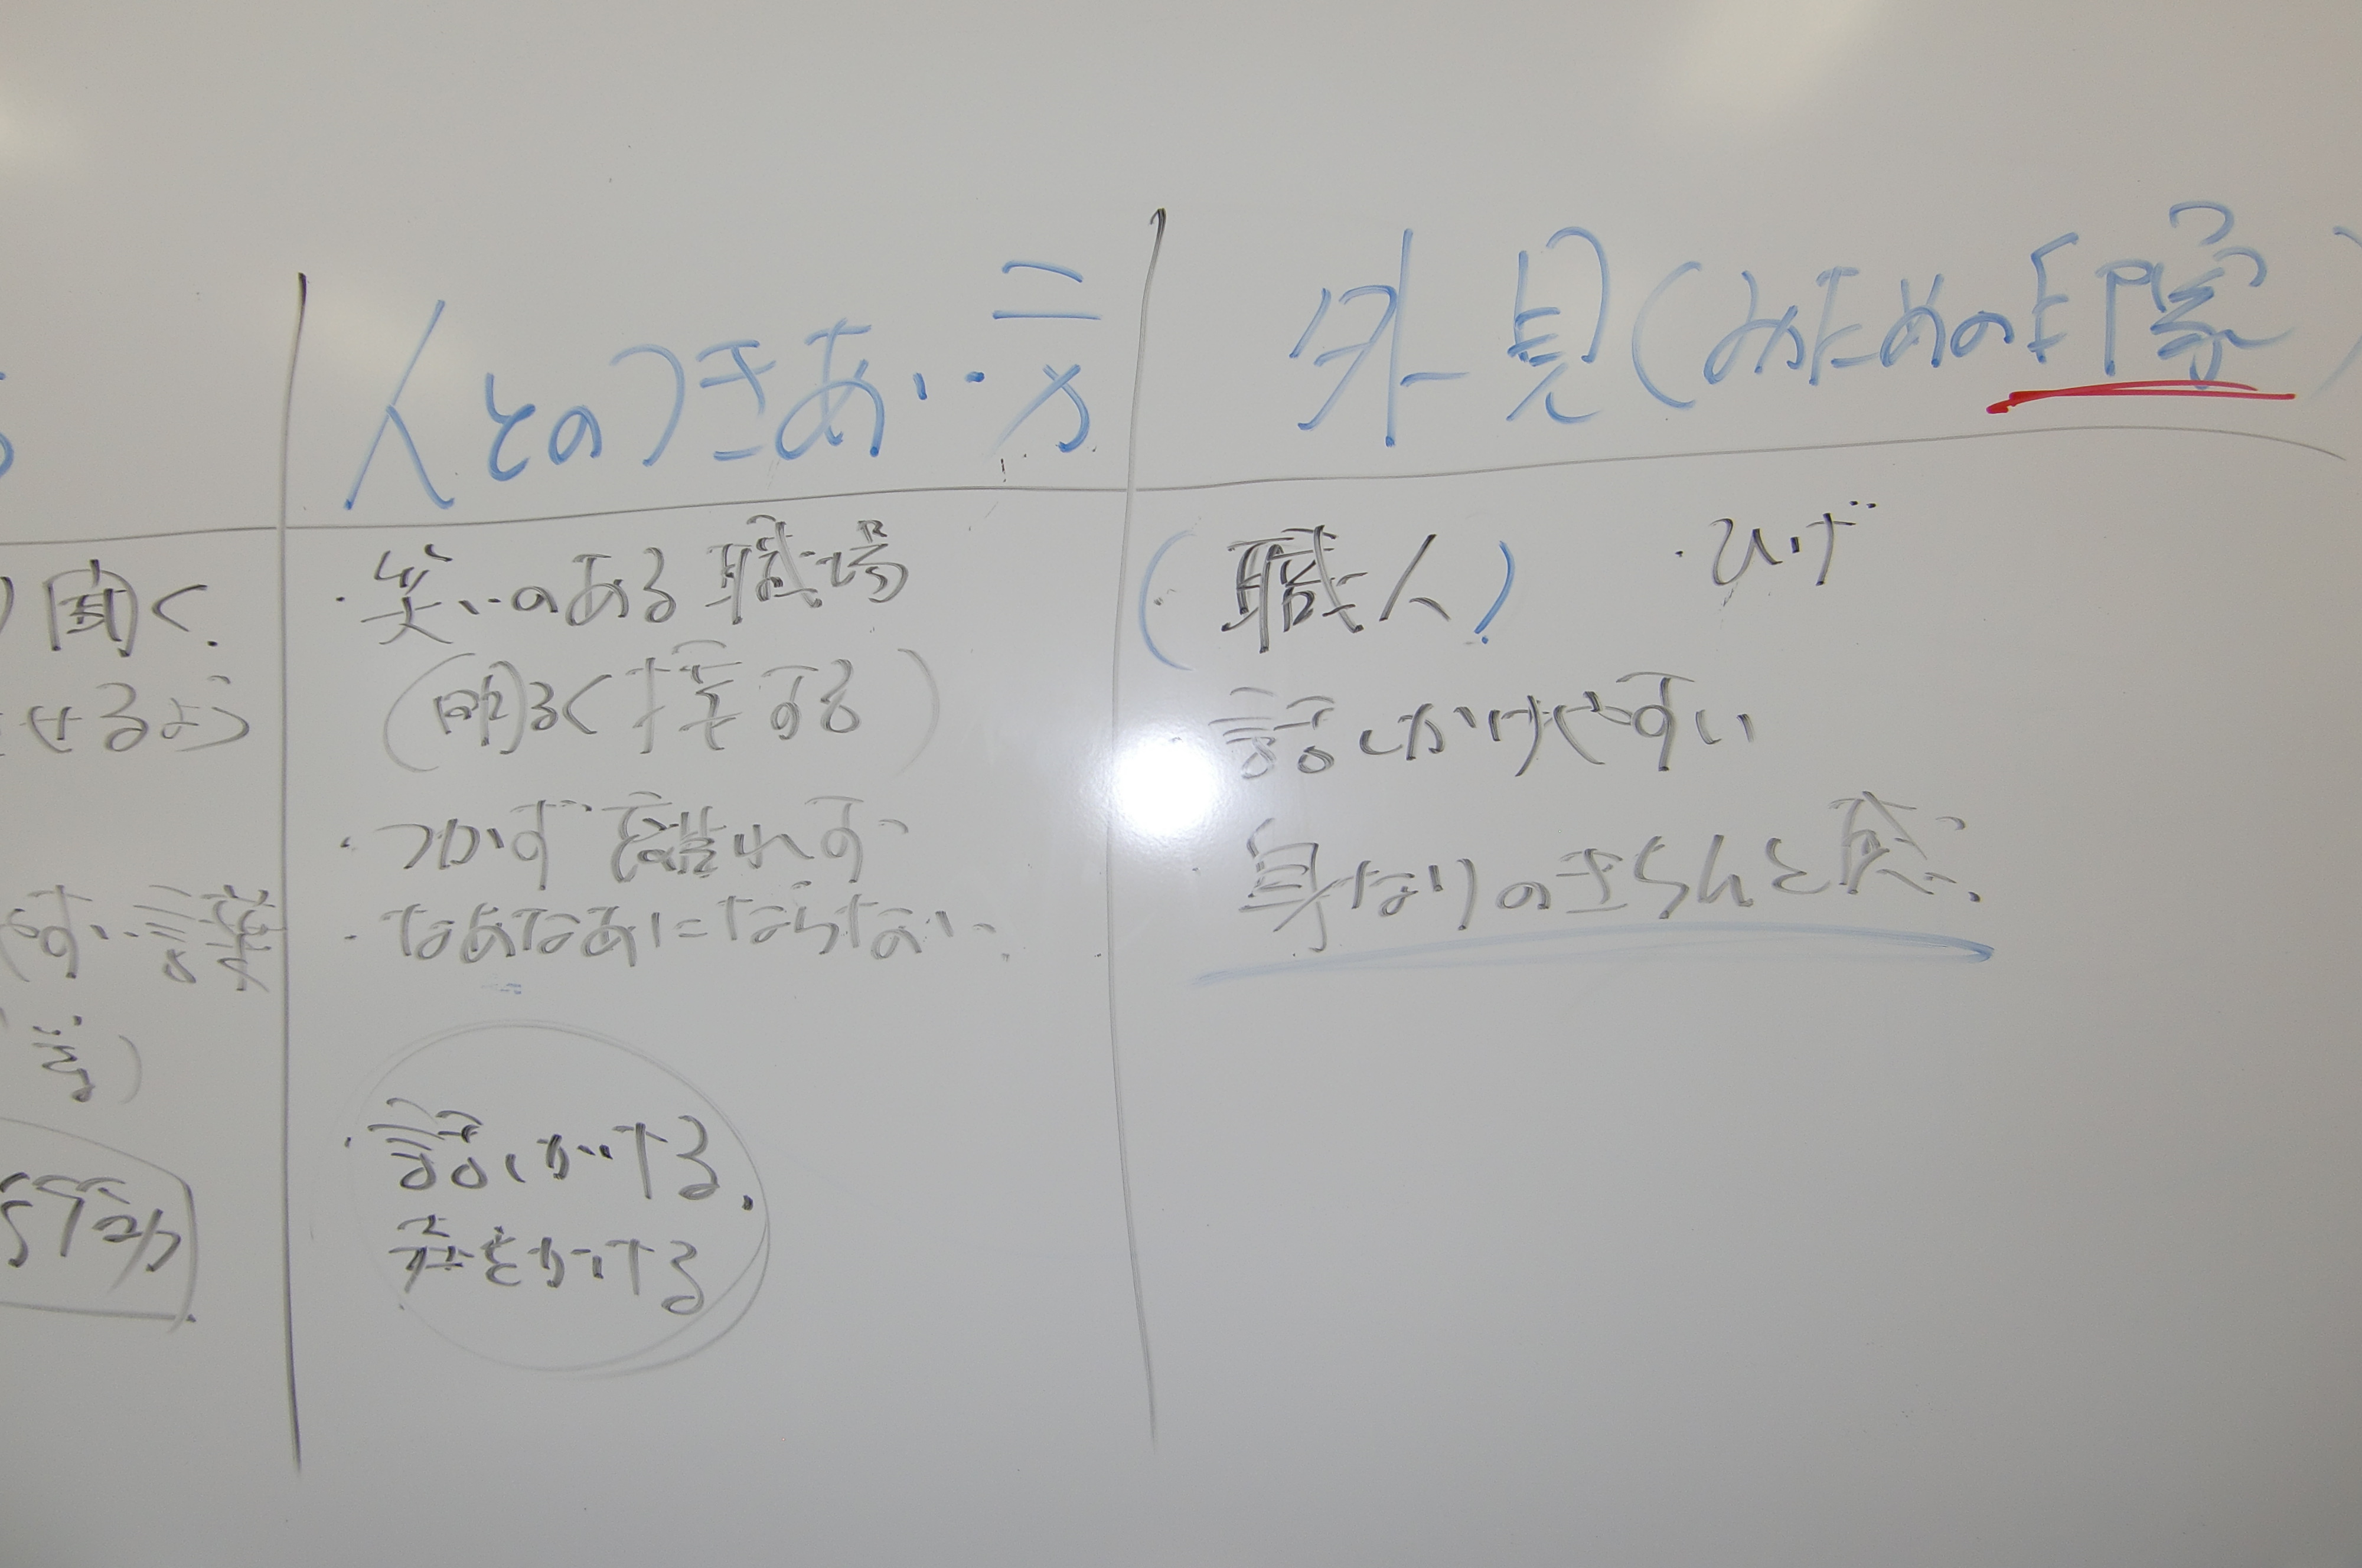 人とのつきあい方
・笑いのある職場
(明るく接する)
・つかず離れず
・なあなあにならない
・話しかける.
声をかける
外見(みための印象)
(職人) ・ひげ
話しかけやすい
身なりのきちんと感
聞く.
せるよう
すい言葉
等)
行動